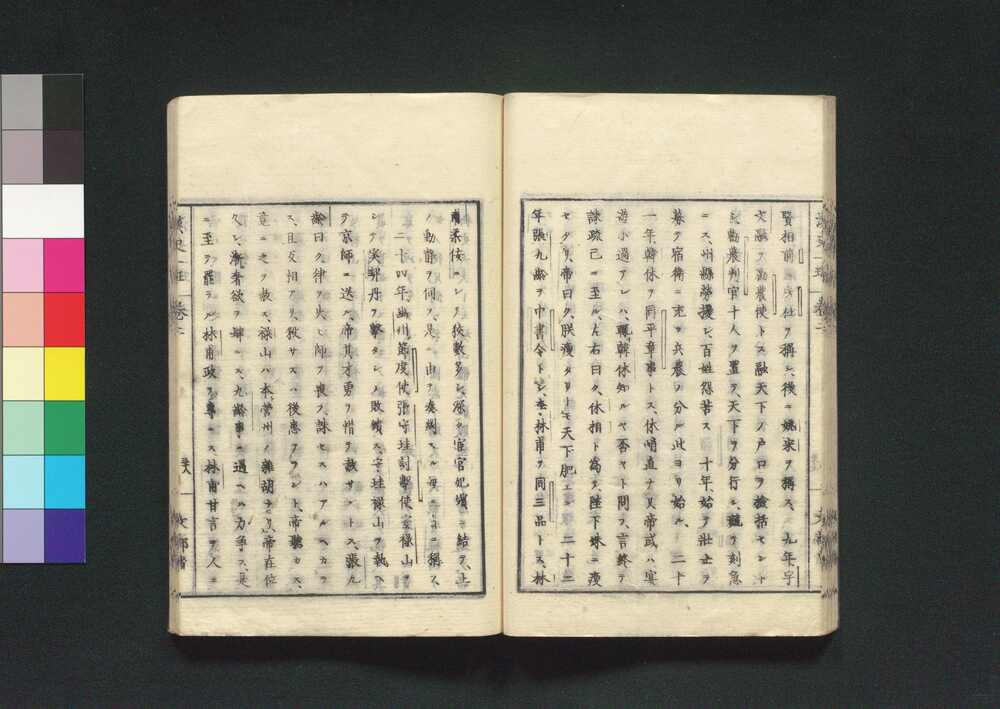 賢相前ニ房杜ヲ稱シ、後ニ姚宋ヲ稱ス、 九年宇
文融ヲ勸農使トス融天下ノ戸口ヲ檢括セント
シ勸農判官十人ヲ置ヲ、天下ヲ分行シ、競ヲ刻急
ニス、州縣勞擾シ、百姓怨苦ス 十年始ヲ壯士ヲ
募ヲ宿衛ニ充ツ兵農ノ分ル此ヨリ始ル、 二十
一年韓休ヲ同平章事トス、休峭直ナリ帝或ハ宴
遊小過アレハ、輒韓休知ルヤ否ヤト問フ、言終テ
諫疏已ニ至ル、左右曰ク、休相ト爲ヲ、陛下殊ニ瘦
セタリ、帝曰ク、朕瘦タリトモ天下肥ユ 二十二
年張九齡ヲ中書令トシ、李林甫ヲ同三品トス、林
甫柔佞ニシヲ狡數多シ、深ク宦官妃嬪ニ結ヲ、上
ノ動靜ヲ伺フ、是ニ由ヲ奏對スル毎ニ旨ニ稱ス、
二十四年、幽州節度使張守珪討擊使安祿山ヲ
シヲ奚契丹ヲ擊タシメ敗績ス、守珪祿山ヲ執ヘ
ヲ京師ニ送ル、帝其才勇ヲ惜ヲ赦サントス、張九
齡曰ク、律ヲ失ヒ師ヲ喪フ、誅セスハアルヘカラ
ス、且反相アリ、殺サスハ後患アラント、帝聽カス、
竟ニ之ヲ赦ス、祿山ハ本營州ノ雜胡ナリ、帝在位
久シ、漸奢欲ヲ肆ニス、九齡事ニ遇ヘハ力爭ス、是
ニ至ヲ罷ラル、林甫政ヲ專ニス、林甫甘言ヲ人ニ
漢史一班 卷二
文部省